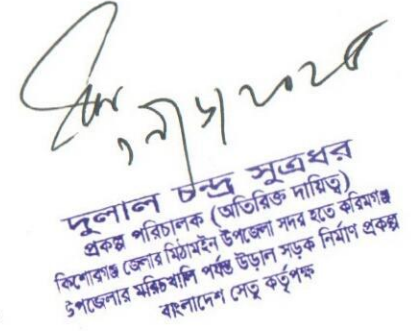 দুলাল চন্দ্র সুত্রধর
প্রকল্প পরিচালক (অতিরিক্ত দায়িত্ব)
কিশোরগঞ্জ জেলার মিঠামইন উপজেলা সদর হতে করিমগঞ্জ
উপজেলার মরিচখালি পর্যন্ত উড়াল সড়ক নির্মাণ প্রকল্প
বাংলাদেশ সেতু কর্তৃপক্ষ